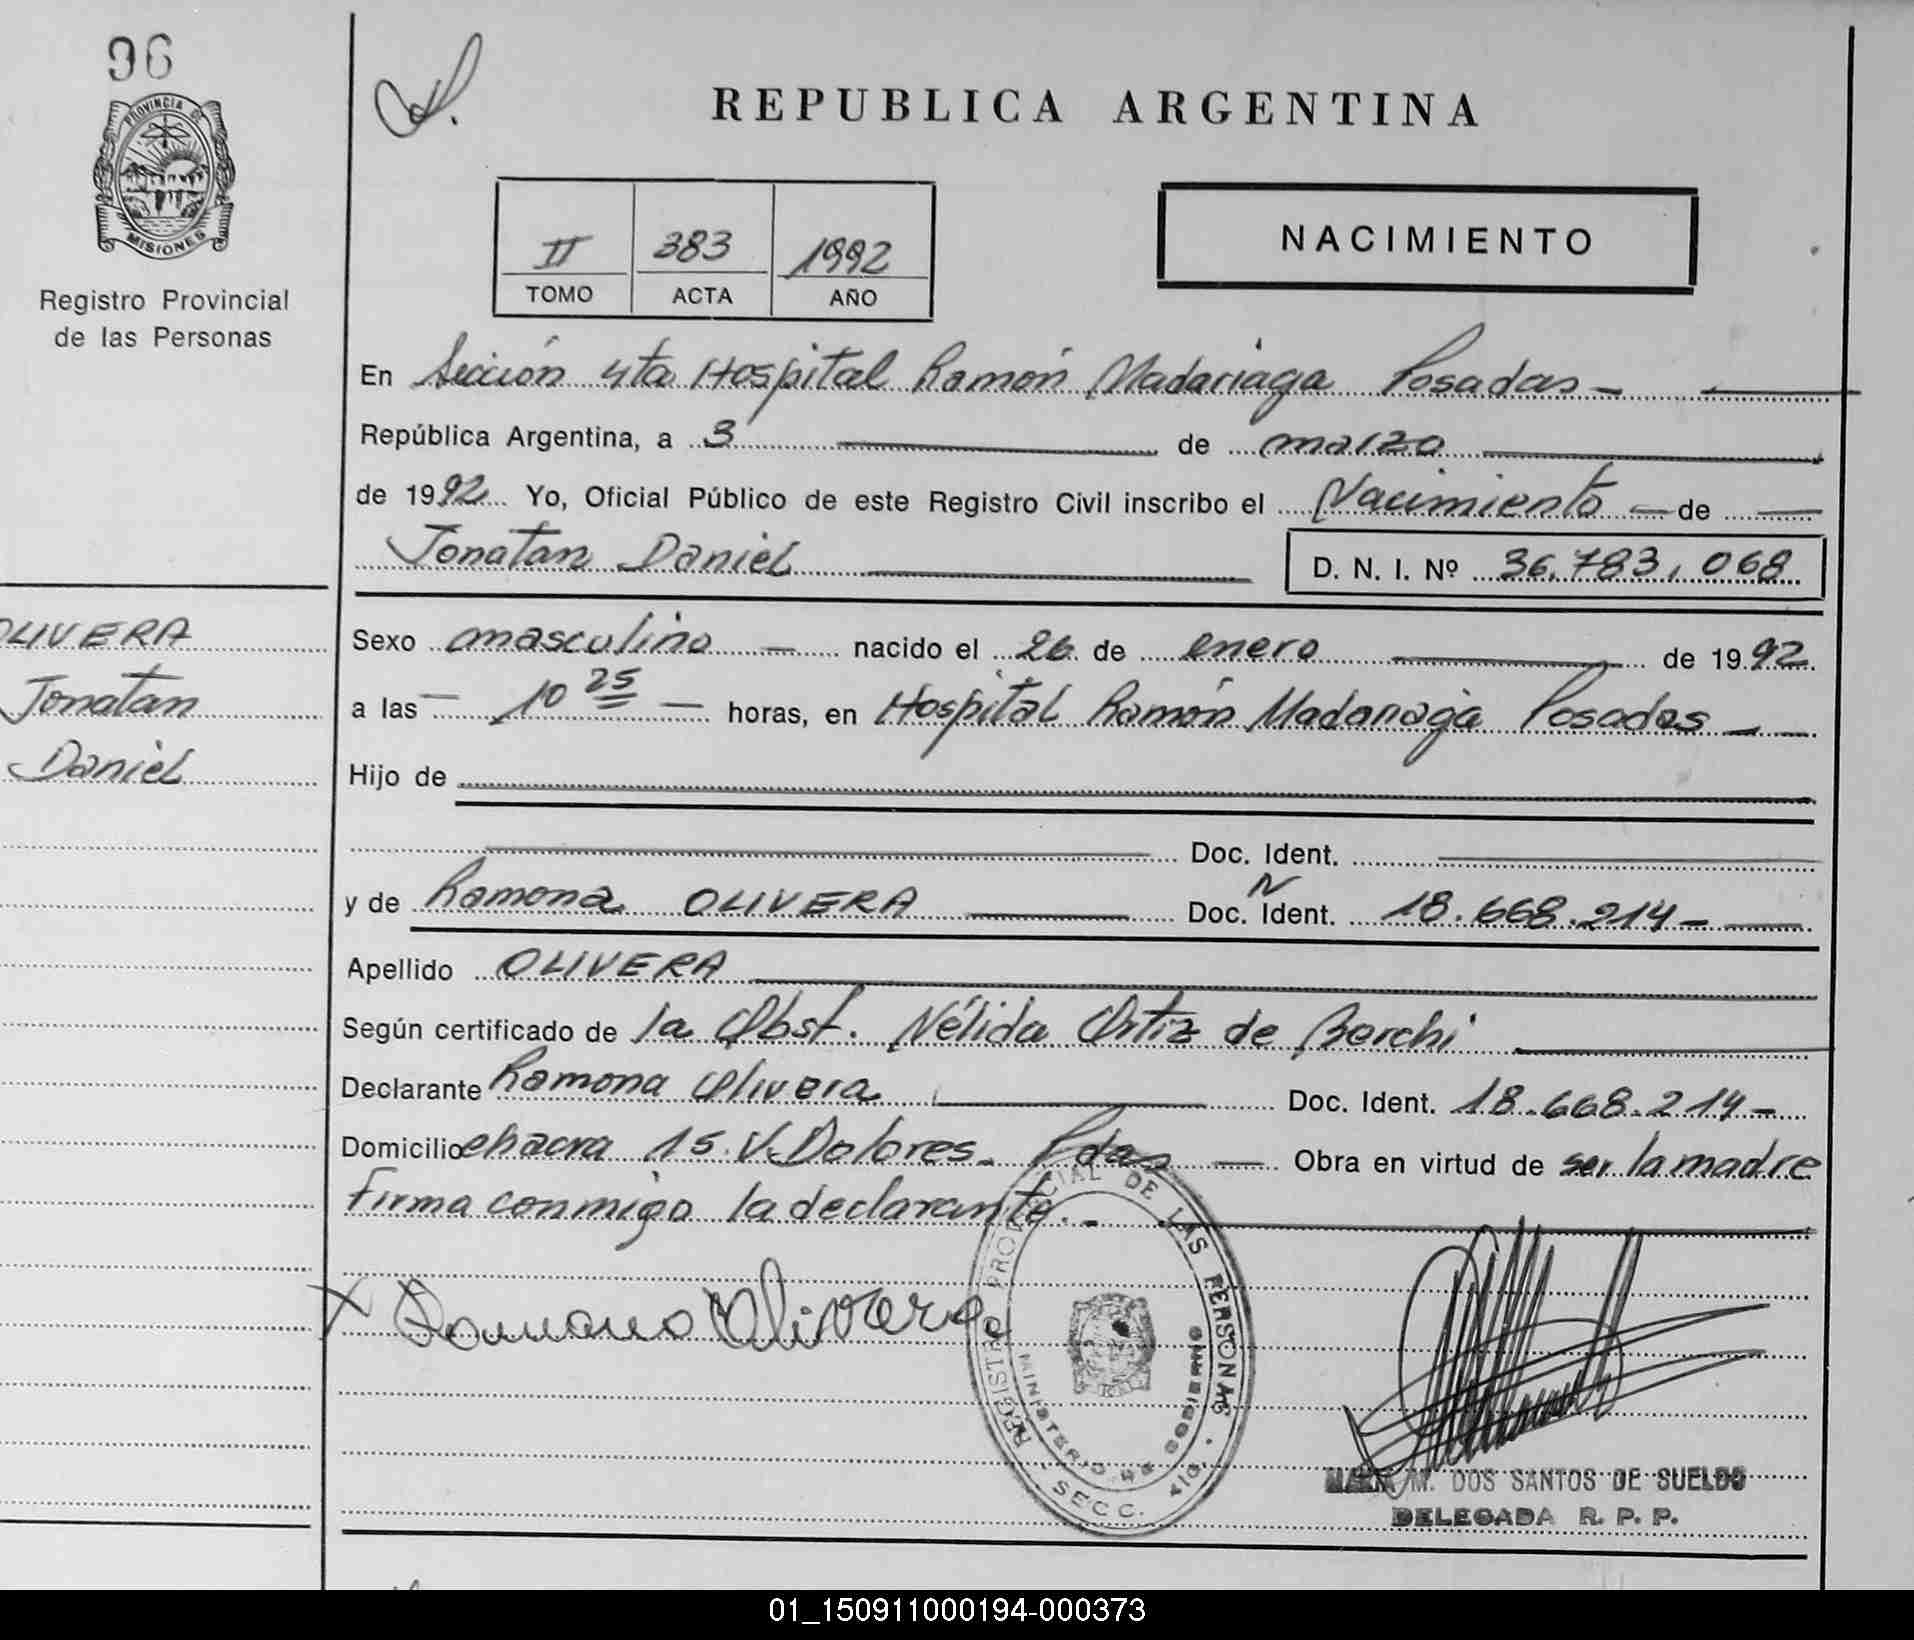 96
PROVINCIA DE
MISIONES
Registro Provincial
de las Personas
OLIVERA
Jonatan
Daniel
REPUBLICA ARGENTINA
II 383 1992
TOMO ACTA AÑO
NACIMIENTO
En Sección 4ta Hospital Ramón Madariaga Posadas
República Argentina, a 3 de marzo
de 1992 Yo, Oficial Público de este Registro Civil inscribo el Nacimiento de
Jonatan Daniel D. N. I. Nº 36.783.068
Sexo masculino nacido el 26 de enero de 1992
a las 10 25 horas, en Hospital Ramón Madariaga Posadas
Hijo de
Doc. Ident.
y de Ramona OLIVERA Doc. N Ident. 18.668.214
Apellido OLIVERA
Según certificado de la Obst. Nélida Ortiz de Berchi
Declarante Ramona Olivera Doc. Ident. 18.668.214
Domicilio chacra 15 V. Dolores. Pdas Obra en virtud de ser la madre
Firma conmigo la declarante.
Ramona Olivera
REGISTRO PROVINCIAL DE LAS PERSONAS
MINISTERIO DE GOBIERNO
SECC. 4ta.
MARIA M. DOS SANTOS DE SUELDO
DELEGADA R. P. P.
01_150911000194-000373